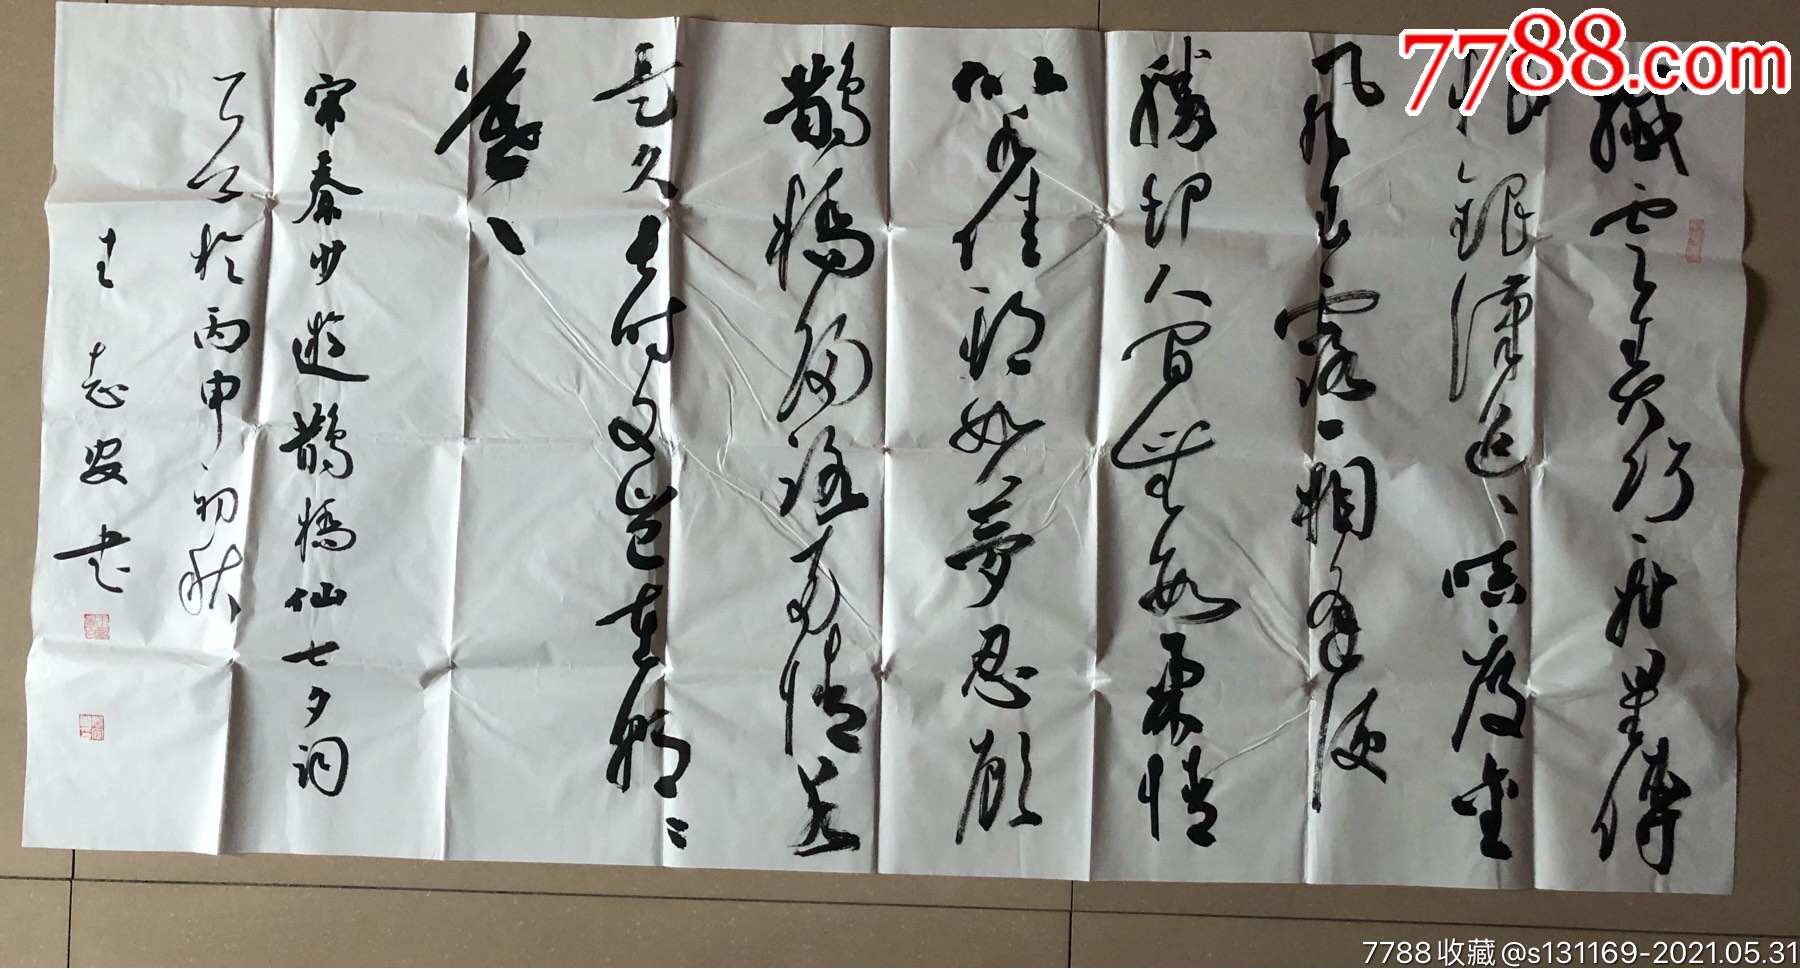 7788.com
纖雲弄巧飛星傳
恨銀漢迢迢暗度金
風玉露一相逢便
勝卻人間無數柔情
似水佳期如夢忍顧
鵲橋歸路兩情若
是久長時又豈在朝朝
暮暮
宋秦少遊鵲橋仙七夕詞
於丙申初秋
王志安书
7788收藏@s131169-2021.05.31